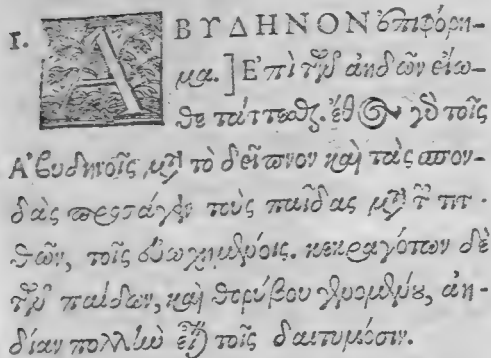 1. ΑΒΥΔΗΝΟΝ ἐπιφόρη-
μα.] Ἐπὶ τῶν ἀηδῶν εἴω-
θε τάττεσθαι. ἔθος γὸ τοῖς
Ἀβυδηνοῖς μετὰ τὸ δεῖπνον καὶ τὰς σπον-
δὰς προσάγειν τοὺς παῖδας μετὰ τῶν τιτ-
θῶν, τοῖς εὐωχημένοις. κεκραγότων δὲ
τῶν παίδων, καὶ θορύβου γενομένου, ἀη-
δίαν πολλὴν εἶναι τοῖς δαιτυμόσιν.